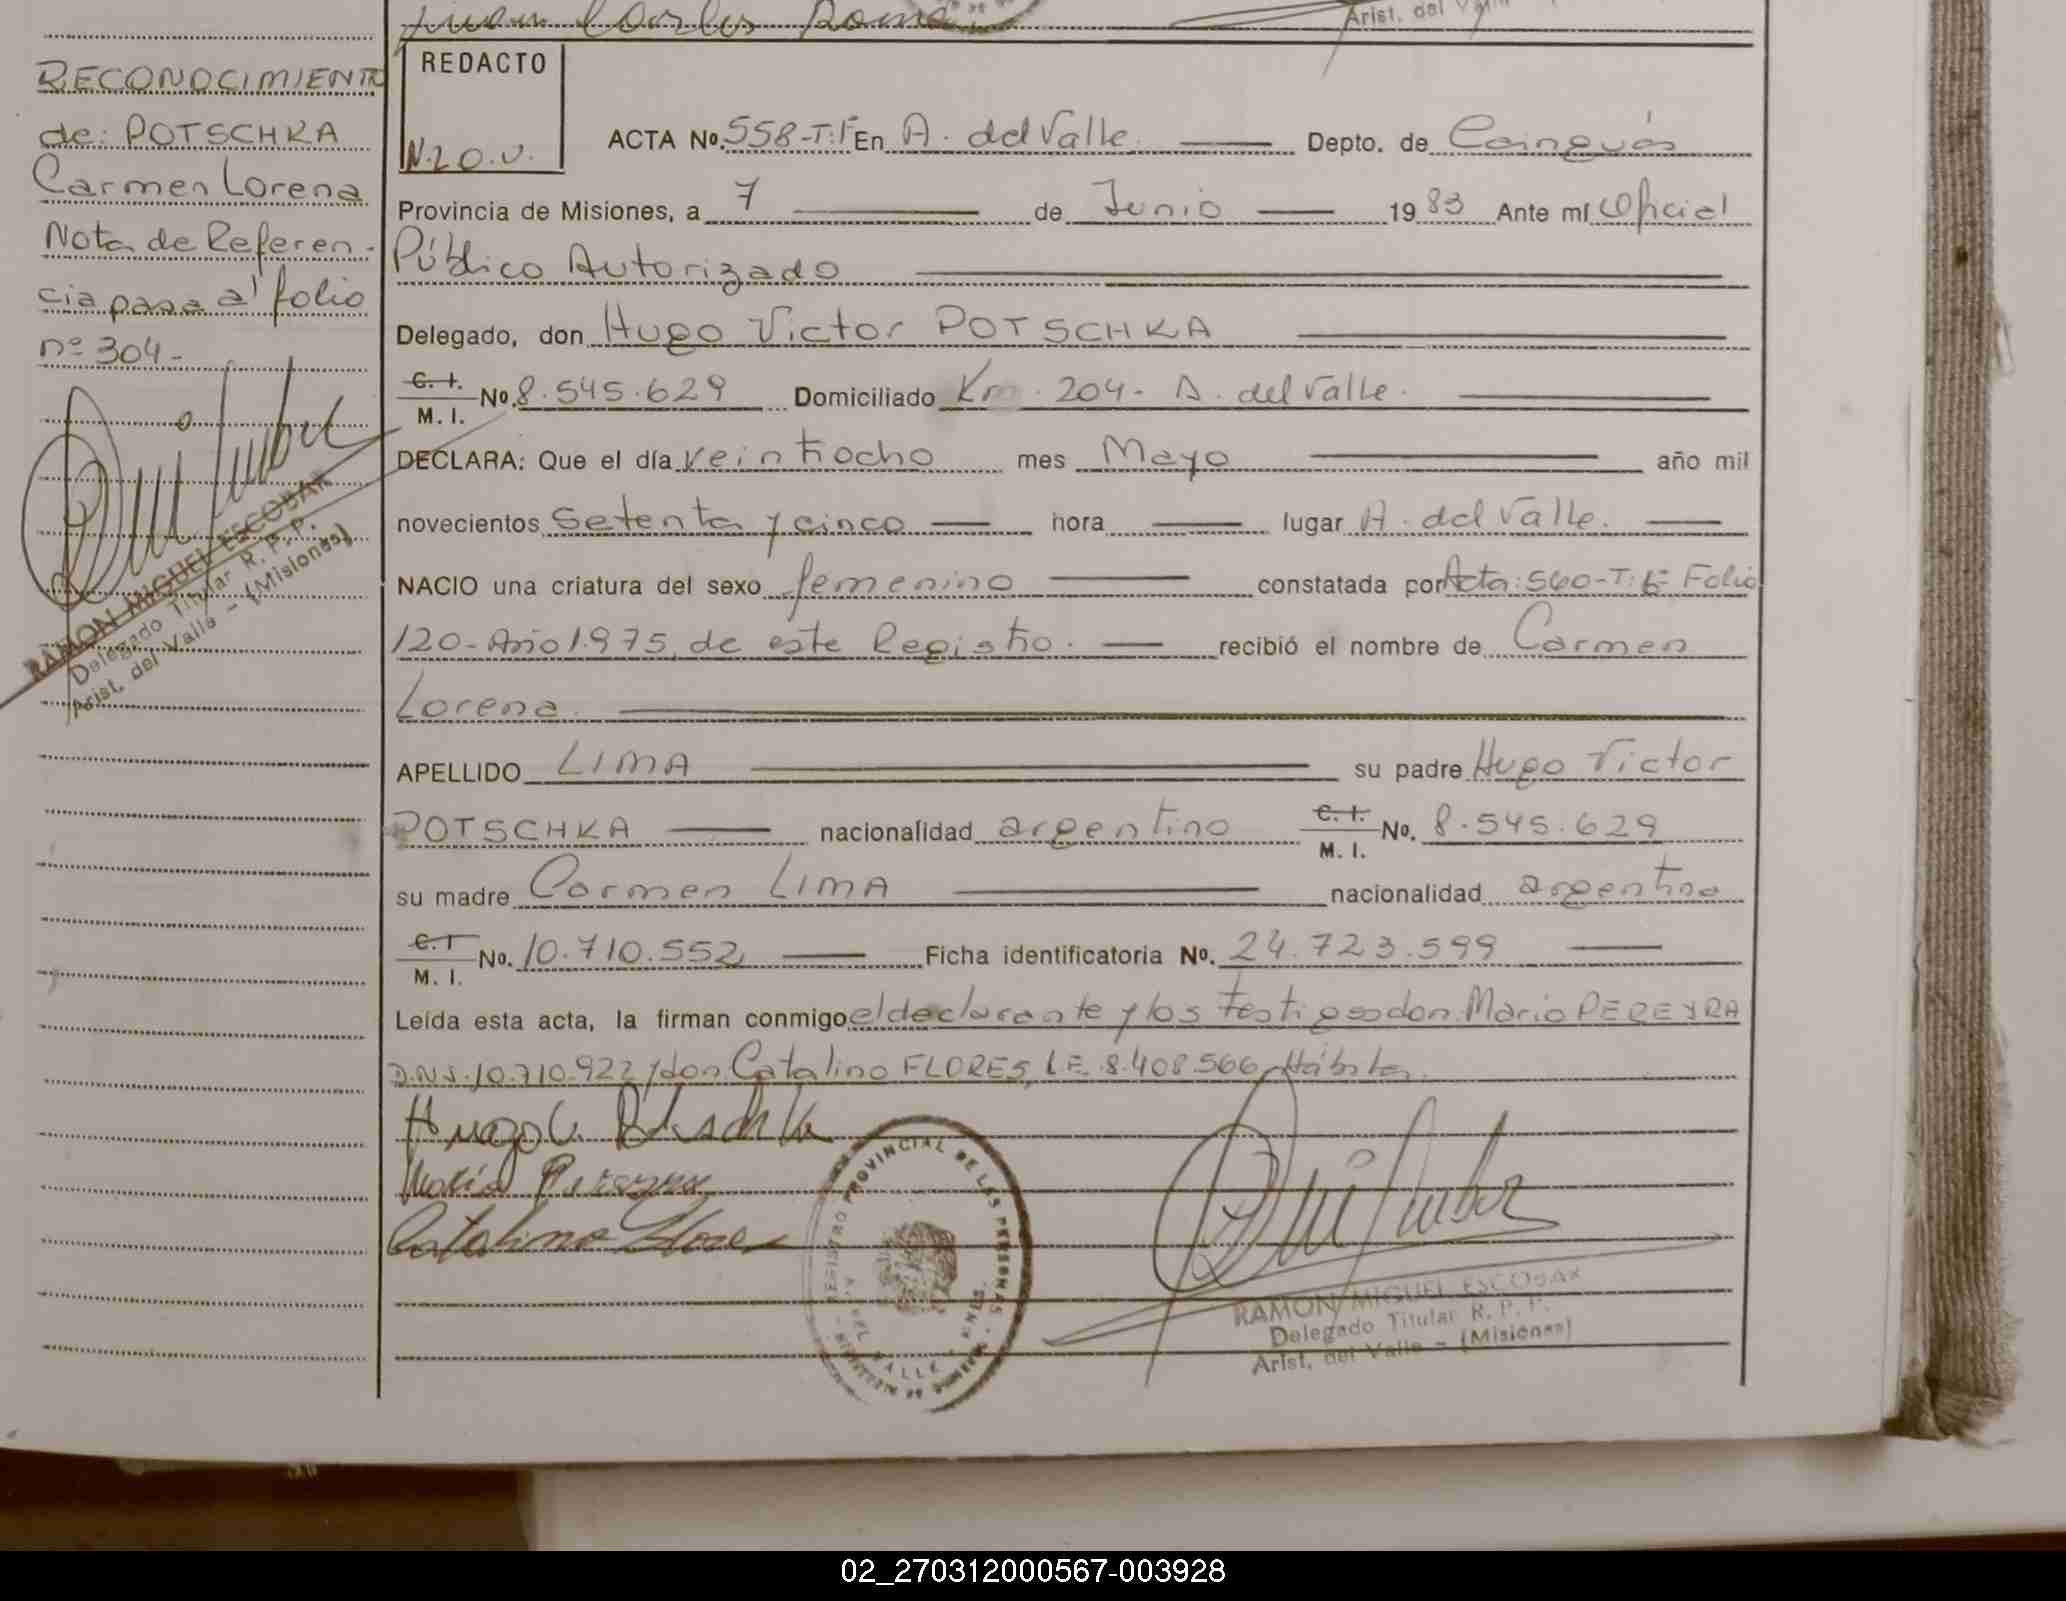 Juan Carlos Roma
Arist. del Valle
RECONOCIMIENTO
de: POTSCHKA
Carmen Lorena
Nota de Referen-
cia pasa al folio
nº 304-
RAMON MIGUEL ESCOBAR
Delegado Titular R. P. P.
Arist. del Valle - (Misiones)
REDACTO
N.Z.O.V.
ACTA Nº. 558-T:I- En A. del Valle. Depto. de Cainguás
Provincia de Misiones, a 7 de Junio 1983 Ante mí Oficial
Público Autorizado
Delegado, don Hugo Victor POTSCHKA
C. I. M. I. Nº. 8.545.629 Domiciliado Km. 204- A. del Valle.
DECLARA: Que el día veintiocho mes Mayo año mil
novecientos setenta y cinco hora lugar A. del Valle.
NACIO una criatura del sexo femenino constatada por Acta: 560-T: Folio
120- Año 1.975, de este Registro. recibió el nombre de Carmen
Lorena.
APELLIDO LIMA su padre Hugo Victor
POTSCHKA nacionalidad argentino C. I. M. I. Nº. 8.545.629
su madre Carmen LIMA nacionalidad argentina
C. I M. I. Nº. 10.710.552 Ficha identificatoria Nº. 24.723.599
Leída esta acta, la firman conmigo el declarante y los testigos don Mario PEREYRA
D.N.I. 10.710.922 y don Catalino FLORES, L.E. 8.408.566, Hábiles.
Hugo V. Potschka
Mario Pereyra
Catalino Flores
REGISTRO PROVINCIAL DE LAS PERSONAS
A. DEL VALLE
RAMON MIGUEL ESCOBAR
Delegado Titular R. P. P.
Arist. del Valle - (Misiones)
02_270312000567-003928